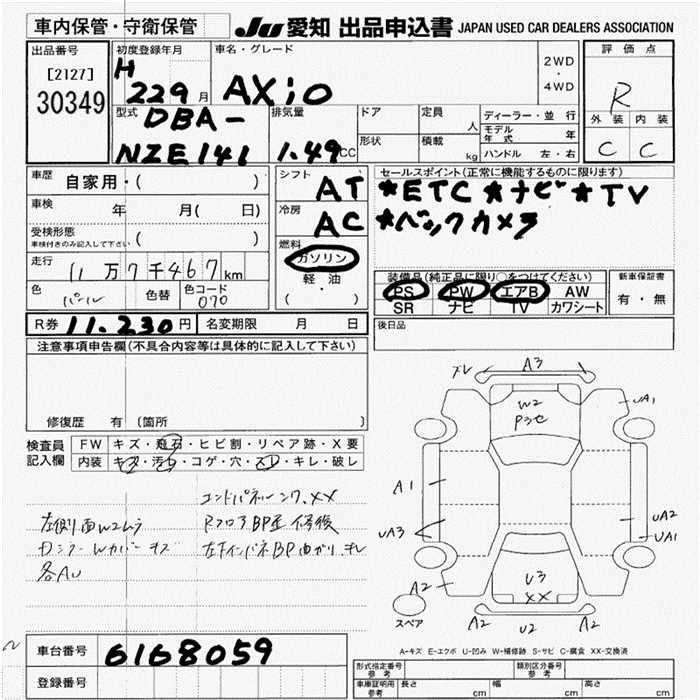 車内保管・守衛保管
JU 愛知 出品申込書 JAPAN USED CAR DEALERS ASSOCIATION
出品番号
[2127]
30349
初度登録年月
H 22 9 月
車名・グレード
AXiO
2WD
・
4WD
評価点
R
外装 内装
C C
型式
DBA-
NZE141
排気量
1.49 CC
ドア
形状
定員 人
積載 kg
ディーラー・並行
モデル年式 年
ハンドル 左・右
車歴 自家用・( )
車検 年 月( 日)
受検形態
車検付きのみ記入して下さい ( )
走行 11万7千467km
色 パール 色替 色コード 070
シフト AT
冷房 AC
燃料
ガソリン
・
軽・油
( ・ )
セールスポイント(正常に機能するものに限ります)
*ETC *ナビ *TV
*バックカメラ
装備品(純正品に限り○をつけてください)
PS PW エアB AW
SR ナビ TV カワシート
新車保証書
有・無
後日品
R券 11.230円 名変期限 月 日
注意事項申告欄(不具合内容等は具体的に記入して下さい)
修復歴 有(箇所 )
検査員記入欄
FW キズ・飛石・ヒビ割・リペア跡・X要
内装 キズ・汚れ・コゲ・穴・スレ・キレ・破レ
コンドパネル
XX
左側面W2ムラ
RフロアBP歪 修後
Dミラー Wカバー キズ
左下インパネBP曲がり
各AU
ズレ A3
W2
Pンセ
UA1
A1
UA3
UA2
UA1
U3
XX
A2
A2
A2 U2
スペア
A-キズ E-エクボ U-凹み W-補修跡 S-サビ C-腐食 XX-交換済
車台番号 6168059
登録番号
形式指定番号 参考
類別区分番号 参考
車庫証明用 参考
長さ cm 幅 cm 高さ cm